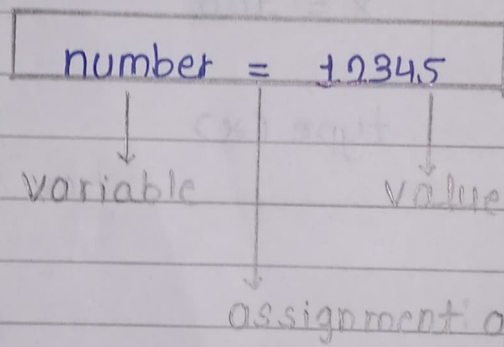 number = 12345
variable value
assignment